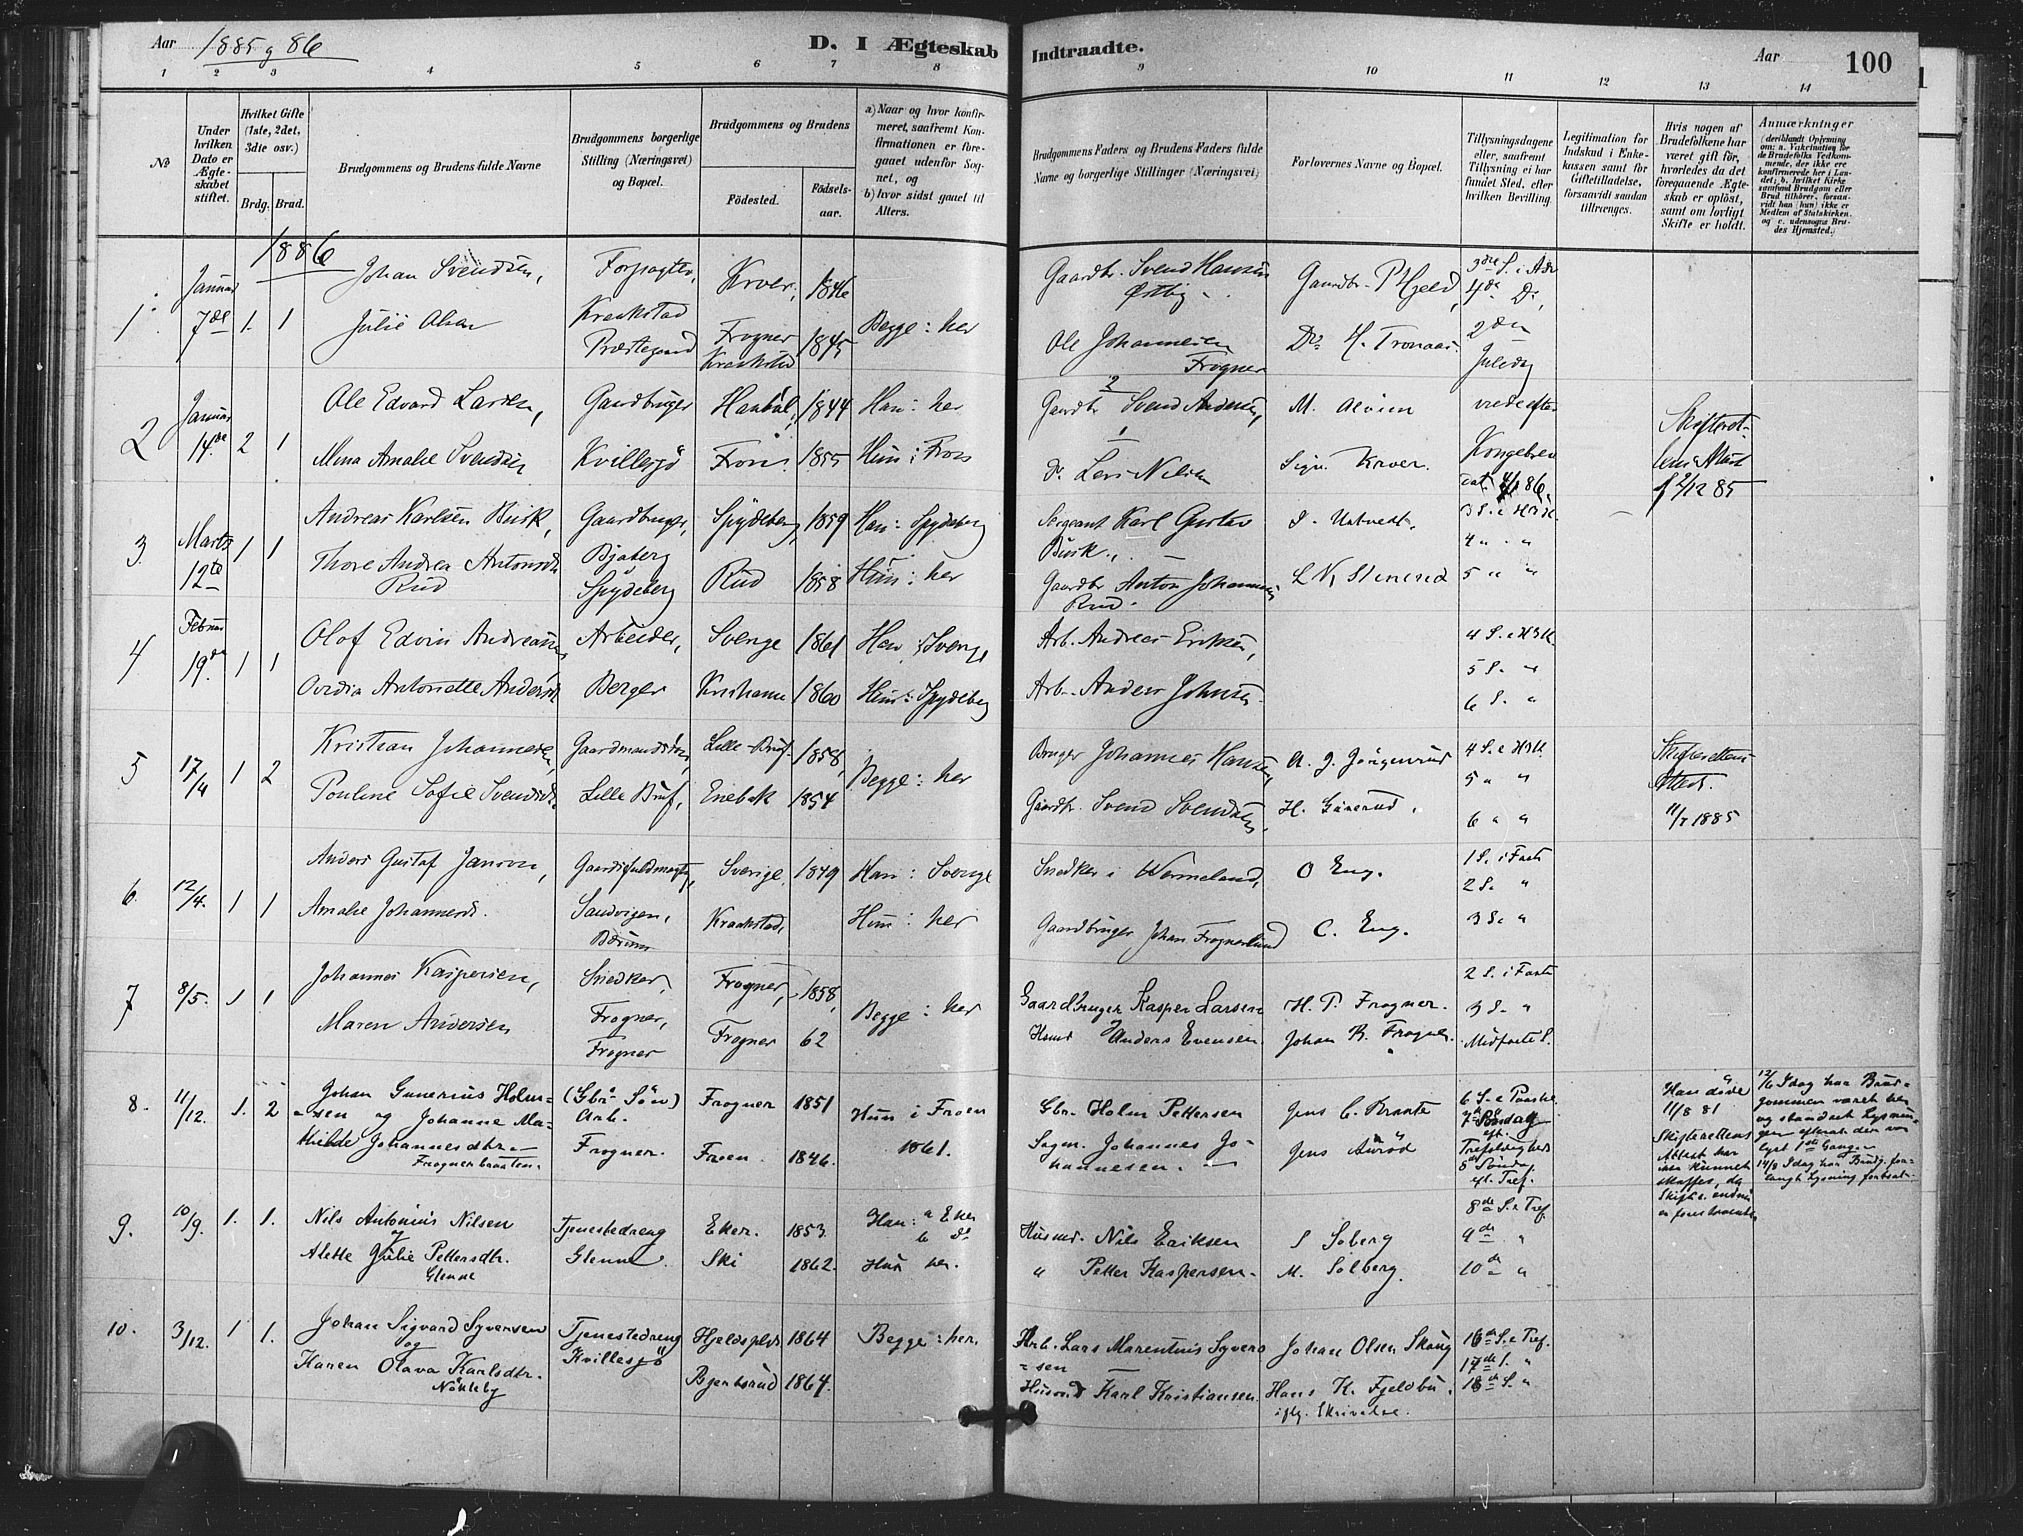 Aar 1885 g 86
D. I Ægteskab Indtraadte.
Aar 100
1 2 3 4 5 6 7 8 9 10 11 12 13 14
No
Under hvilken Dato er Ægteskabet stiftet.
Hvilket Gifte (1ste, 2det, 3die osv.)
Brdg. Brud.
Brudgommens og Brudens fulde Navne
Brudgommens borgerlige Stilling (Næringsvei) og Bopæl.
Brudgommens og Brudens
Fødested.
Fødselsaar.
a) Naar og hvor konfirmeret, saafremt Konfirmationen er foregaaet udenfor Sognet, og
b) hvor sidst gaaet til Alters.
Brudgommens Faders og Brudens Faders fulde Navne og borgerlige Stillinger (Næringsvei)
Forlovernes Navne og Bopæl.
Tillysningsdagene eller, saafremt Tillysning ei har fundet Sted, efter hvilken Bevilling.
Legitimation for Indskud i Enkekassen samt for Giftetilladelse, forsaavidt saadan tiltrænges.
Hvis nogen af Brudefolkene har været gift før, hvorledes da det foregaaende Ægteskab er opløst, samt om lovligt Skifte er holdt.
Anmærkninger
(deriblandt Oplysning om: a. Vakcination for de Brudefolks Vedkommende, der ikke ere konfirmerede her i Landet; b. hvilket Kirkesamfund Brudgom eller Brud tilhører, forsaavidt han (hun) ikke er Medlem af Statskirken, og c. udensogns Brudes Hjemsted.)
1886
1. Januar 7de 1. 1
Johan Svendsen,
Julie Olsen
Forpagter,
Kraakstad
Præstegaard
Kroer, 1846
Frogner Kraakstad 1845
Begge: her
Gaardbr. Svend Hansen Østby
Ole Johannesen Frogner
Gaardbr. P Hjeld,
Do H. Tronaas
3die S. i Adv
4de Do,
2den Juledag
2 Januar 14de 2 1
Ole Edvard Larsen,
Mina Amalie Svendsen
Gaardbruger
Kvillesjø
1844
Frons. 1855
Han: her
Hun: Fron
2 Gaardbr Svend Andersen,
1 do. Lars Nilsen
Sign. Kroer.
Kongebrev
dat. 4/1 86.
Skifteret-
2/12 85
3. Marts 12te 1 1
Andreas Karlsen Busk,
Thore Andrea Antonsdtr
Rud
Gaardbruger,
Bjaberg
Spydeberg
Spydeberg, 1859
Rud 1858
Han: Spydeberg
Hun: her
Sergeant Karl Gustav
Busk.,
Gaardbr Anton Johannesen
Rud.
L N, Stenerud
4 " "
5 " "
4 Februar 19de 1 1
Olof Edvin Andreassen,
Ovidia Antonette Andersdtr
Arbeider,
Berger
Sverige 1861
Kristiania 1860
Han: Sverige
Hun: Spydeberg
Arb. Andreas Eriksen,
Arb. Anders Johnsen
5 S. "
6 S. "
5 17/4 1 2
Kristian Johannesen,
Pouline Sofie Svendsdtr.
Gaardmandssøn,
Lille Bruf,
Lille-Bruf. 1858,
Enebak 1854
Begge: her
Bruger Johannes Hansen,
Gaardbr. Svend Svendsen,
A. J. Jørgenrud
H. Gunerud.
5 " "
6 " "
Skifterettens
Attest.
6. 12/4. 1 1
Anders Gustaf Janson,
Amalie Johannesd.
Gaardsfuldmægtig,
Sandvigen,
Bærum
Sverige. 1849
Kraakstad,
Han: Sverige
Hun: her
Snedker i Wermeland,
Gaardbruger Johan Frognerlund
O Eng.
C. Eng.
1 S. i Faste
2 S. "
3 S. "
7 8/5. 1 1
Johannes Kaspersen,
Maren Andersen
Snedker,
Frogner,
Frogner
Frogner, 1858,
Frogner 62
Begge: her
Gaardbruger Kasper Larsen
Anders Evensen
H. P. Frogner.
Johan B. Frogner.
2 S. i Faste
3 S. "
Midfaste S.
8. 11/12. 1. 2
Johan Gunerius Holm-
sen og Johanne Ma-
thilde Johannesdtr
Frognerbraaten.
(Gbr Søn)
Arb.
Frogner.
Frogner 1851
Froen. 1846.
Hun i Froen
1861.
Gbr. Holm Pettersen
Johannes Jo-
hannesen.
Jens C. Kraate
6 S. e Paaske
Skifterettens
Attest har
ikke kunnet
skaffes, da
9. 10/9. 1. 1.
Nils Antonius Nilsen
og
Alette Julie Pettersdtr.
Glenne
Tjenestedreng
Glenne.
Eker. 1853.
Ski 1862.
Han: a Eker
b do
Hun her.
Husmd. Nils Eriksen
" Petter Kaspersen
S Solberg
M. Solberg.
8de S. e Tref
9de "
10de "
10. 3/12. 1 1.
Johan Sigvard Syversen
og
Karen Olava Karlsdtr.
Nøkleby
Tjenestedreng
Kvillesjø
Hjeldsplds 1864
Bjentsrud 1864.
Begge: her.
Arb. Lars Marentius Syver-
sen
Husmd Karl Kristiansen.
Johan Olsen Skoug
Hans K. Fjeldbu.
iflg. Skrivelse.
16de S. e Tref.
17de S. "
18de S. "